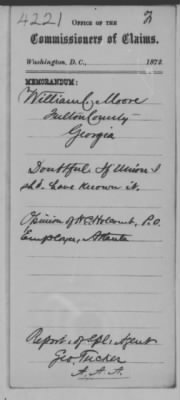 4221
2
OFFICE OF THE
Commissioners of Claims.
Washington, D. C., 1873.
MEMORANDUM:
William C. Moore
Fulton County
Georgia
Doubtful. If Union I
shd. have known it.
Opinion of H.C. Holcomb, P.O.
Employee, Atlanta
Report of Spl. Agent
Geo. Tucker
A.A.A.